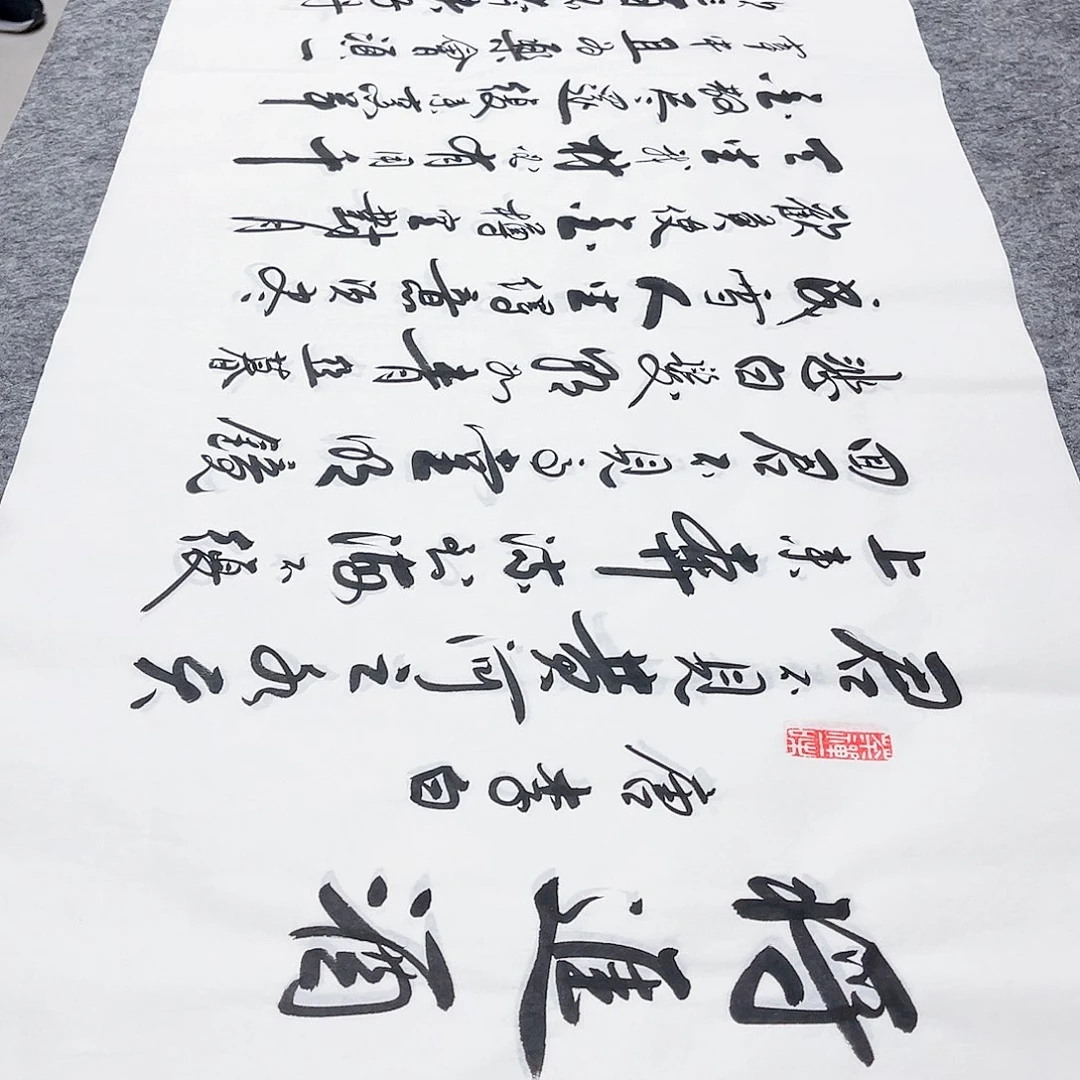 将進酒
唐李白
君不見黄河之水天
上来奔流到海不復
回君不見高堂明鏡
悲白髮朝如青丝暮
成雪人生得意須尽
歡莫使金樽空對月
天生我材必有用千
金散尽還復来烹羊
宰牛且为樂會須一
三百杯岑夫子丹